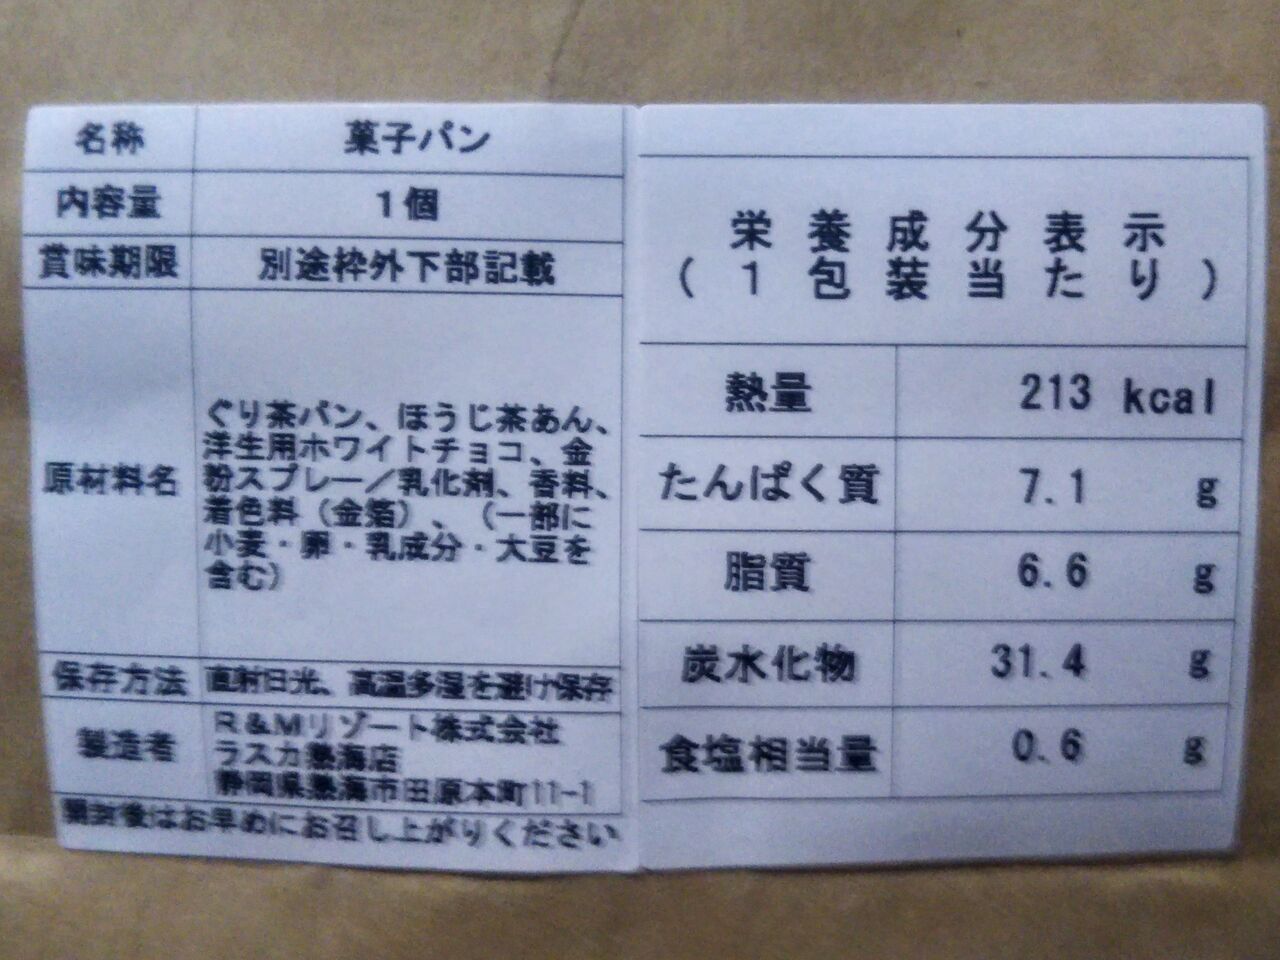 名称 菓子パン
内容量 1個
賞味期限 別途枠外下部記載
原材料名
ぐり茶パン、ほうじ茶あん、
洋生用ホワイトチョコ、金
粉スプレー／乳化剤、香料、
着色料（金箔）、（一部に
小麦・卵・乳成分・大豆を
含む）
保存方法 直射日光、高温多湿を避け保存
製造者
R&Mリゾート株式会社
ラスカ熱海店
静岡県熱海市田原本町11-1
開封後はお早めにお召し上がりください
栄養成分表示
(1包装当たり)
熱量 213 kcal
たんぱく質 7.1 g
脂質 6.6 g
炭水化物 31.4 g
食塩相当量 0.6 g